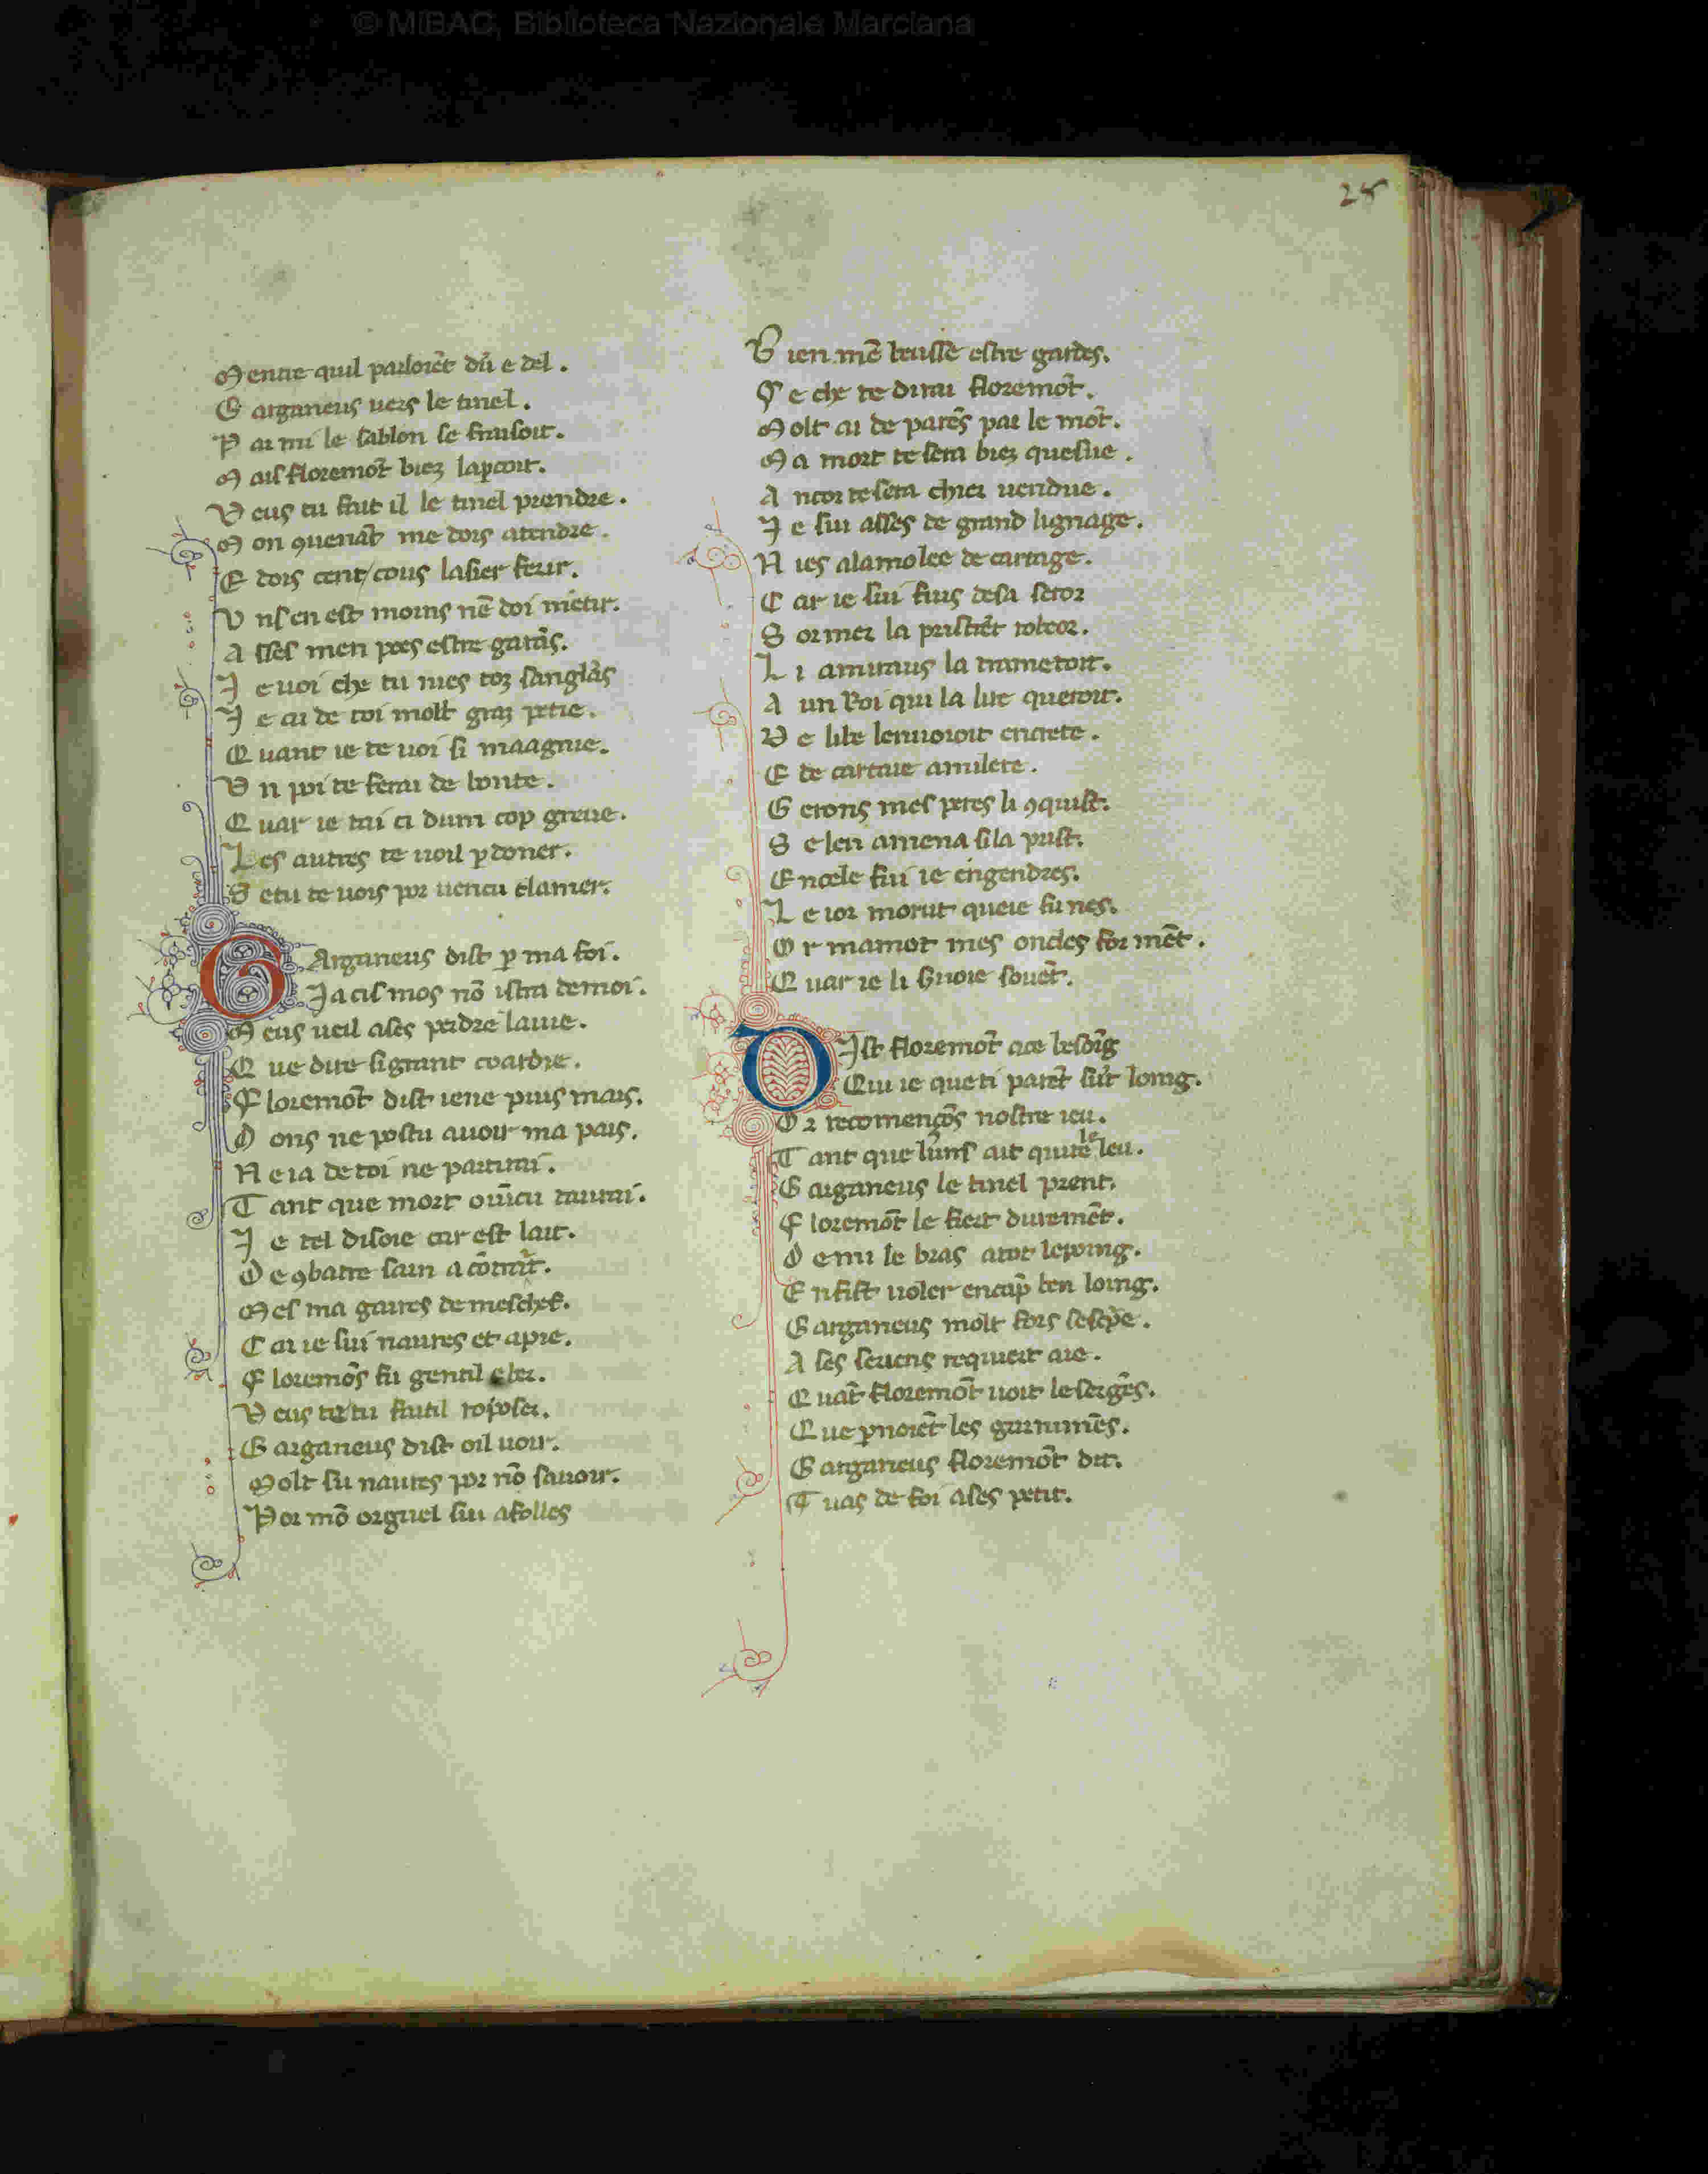 © MiBAC, Biblioteca Nazionale Marciana
25
M entre quil parloiēt dū e del.
G arganeus uers le tinel.
P ar mi le sablon se traisoit.
M ais floremōt biez laꝑcoit.
V eus tu fait il le tinel prendre.
M on ꝯuenāt me dois atendre.
E dois cent cous lasier ferir.
V nſ en est moins nē doi mētir.
A sses men poes estre garās.
J e uoi che tu nies toz sanglās
J e ai de toi molt graz petie.
Q uant ie te uoi si maagnie.
V n poi te ferai de bonte.
Q uar ie tai ci dum cop greue.
L es autres te uoil ꝑdoner.
S e tu te uois por uencu clamer.
G Arganeus dist ꝑ ma foi.
Ja cis mos nō istra de moi.
M eus ueil ases perdre la uie.
Q ue dire si grant coardie.
F loremōt dist iene puis mais.
D ons ne postu auoir ma pais.
N e ia de toi ne partirai.
T ant que mort ou uīcu taurai.
J e tel disoie car est lait.
D e ꝯbatre sain a cōtrait.
M es ma gaires de meschef.
C ar ie sui naures et a pie.
F loremōs fu gentil e ber.
V eus te tu faitil roposer.
G arganeus dist oil uoir.
M olt su naures por nō sauoir.
P or mō orguel sui afolles
B ien mē deusse estre gardes.
C e che te dirai floremōt.
M olt ai de parēs par le mōt.
M a mort te sera biez quesue.
A ncor te sera chier uendue.
J e sui asses de grand lignage.
N ies alamolee de cartage.
C ar ie sui fius de sa seror
S ormer la pristrēt robeor.
L i amiraus la trametoit.
A un Roi qui la lue queroit.
D e libe lenuoioit en crete.
E de cartaie amilete.
G erons mes peres li ꝯquist.
S e len amena si la prist.
E n cele fui ie ēgendres.
L e ior morut que ie fu nes.
O r mamot mes oncles for mēt.
Q uar ie li seruoie souēt.
D Jst floremōt a ce besōig
Qui ie que ti parēt sūt loing.
O r recomenços nostre ieu.
T ant que lunſ ait quite le leu.
G arganeus le tinel prent.
F loremōt le fiert duremēt.
D emi le bras atot le poing.
E n fist uoler en cāp ben loing.
G arganeus molt fors sesc̄pe.
A ses seriens requiert aie.
Q uāt floremōt uoit le sergēs.
Q ue ꝑnoiēt les garnimēs.
G arganeus floremōt dit.
T u as de foi ases petit.